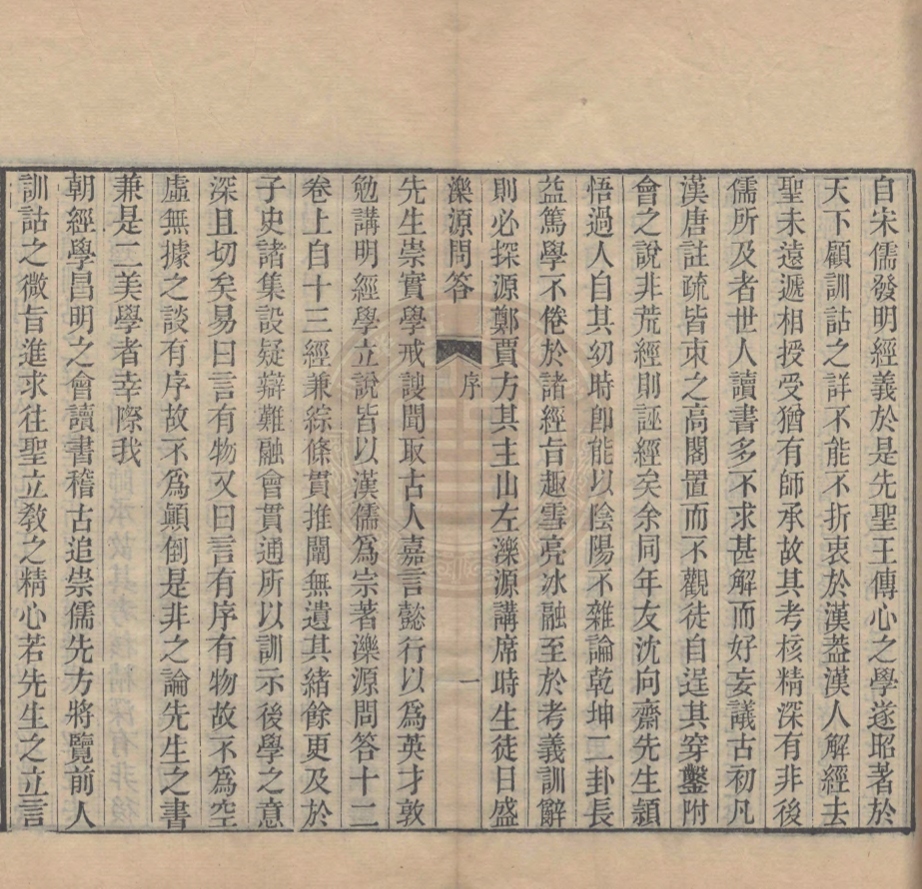 自宋儒發明經義於是先聖王傳心之學遂昭著於
天下顧訓詁之詳不能不折衷於漢葢漢人解經去
聖未遠遞相授受猶有師承故其考核精深有非後
儒所及者世人讀書多不求甚解而好妄議古初凡
漢唐註疏皆束之高閣置而不觀徒自逞其穿鑿附
會之說非荒經則誣經矣余同年友沈向齋先生穎
悟過人自其幼時卽能以陰陽不雜論乾坤二卦長
益篤學不倦於諸經旨趣雪亮冰融至於考義訓辭
則必探源鄭賈方其主山左濼源講席時生徒日盛
濼源問答 序 一
先生崇實學戒謏聞取古人嘉言懿行以爲英才敦
勉講明經學立說皆以漢儒爲宗著濼源問答十二
卷上自十三經兼綜條貫推闡無遺其緒餘更及於
子史諸集設疑辯難融會貫通所以訓示後學之意
深且切矣易曰言有物又曰言有序有物故不爲空
虛無據之談有序故不爲顚倒是非之論先生之書
兼是二美學者幸際我
朝經學昌明之會讀書稽古追崇儒先方將覽前人
訓詁之微旨進求往聖立敎之精心若先生之立言